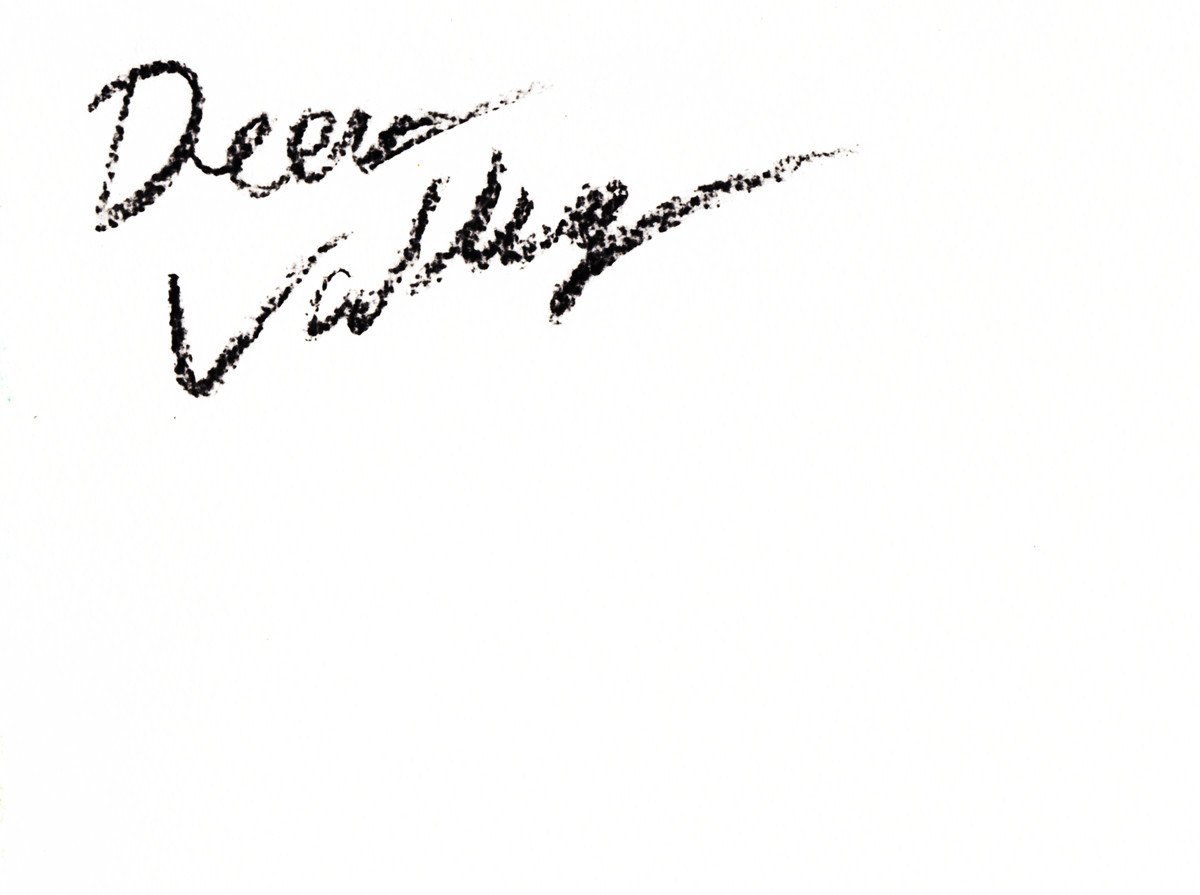 Deer
Valley